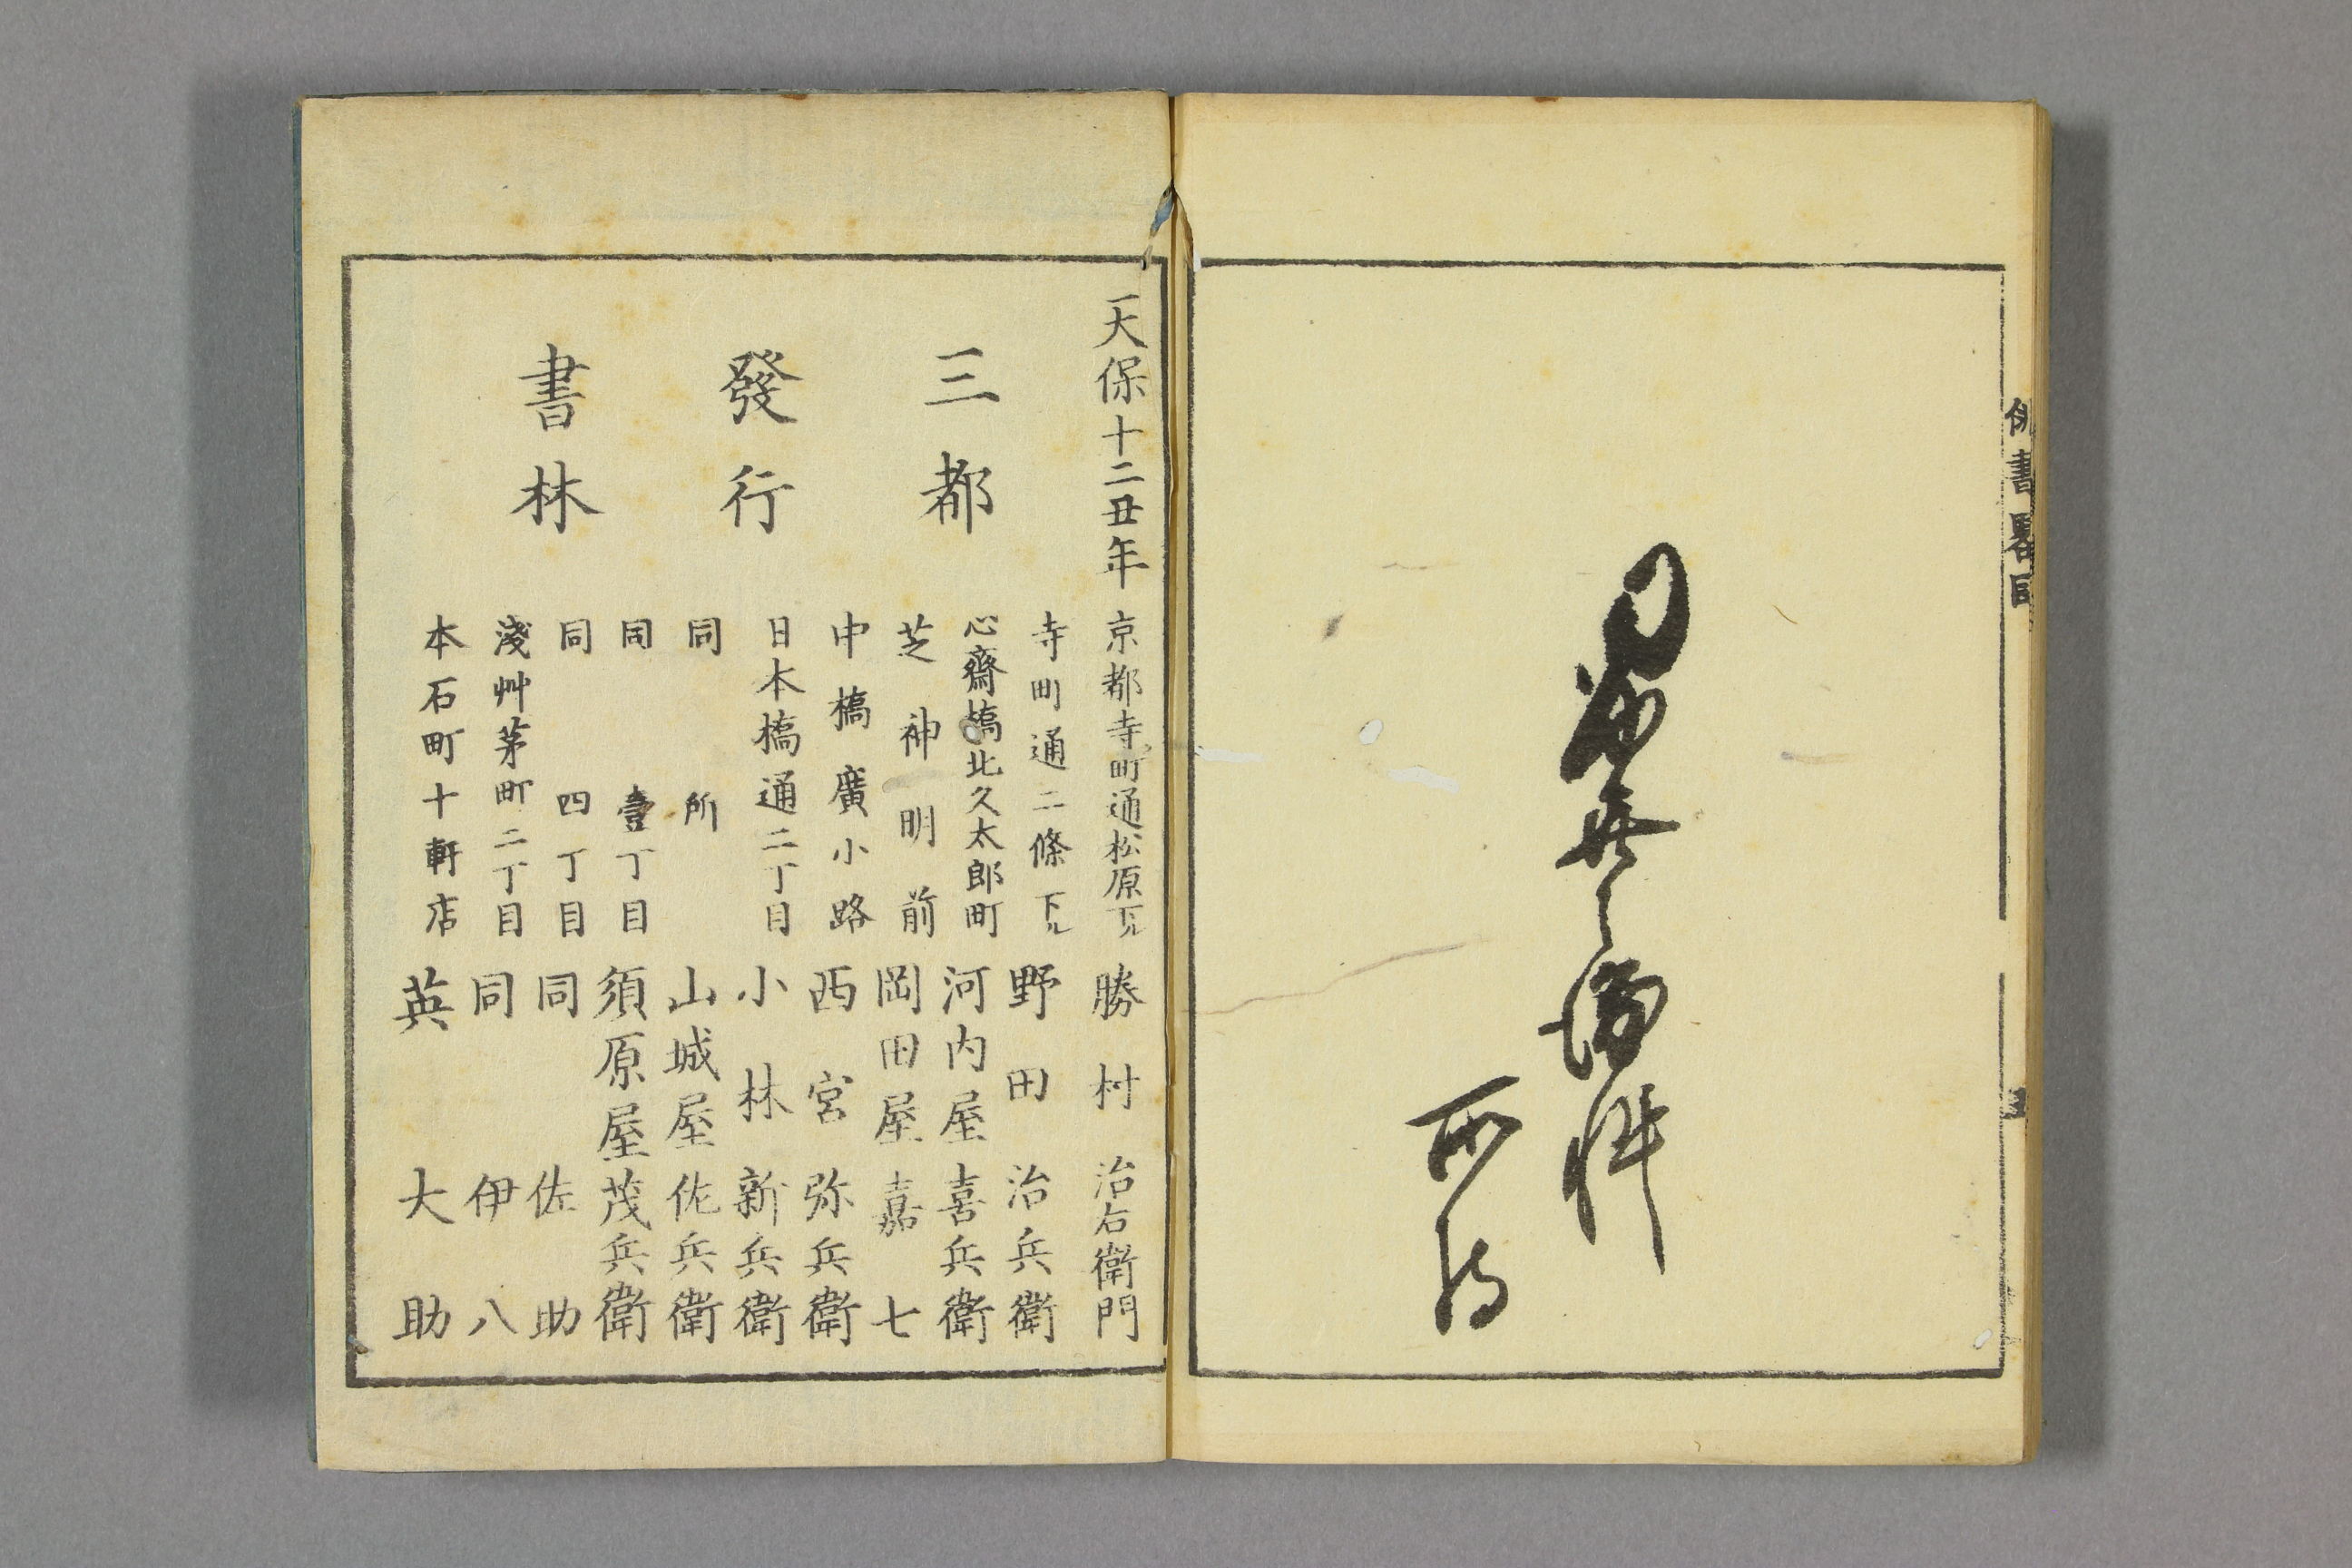 書畧
所持
天保十二丑年
三都
發行
書林
京都寺町通松原下ル 勝村治右衛門
寺町通二條下ル 野田治兵衛
心齋橋北久太郎町 河内屋喜兵衛
芝神明前 岡田屋嘉七
中橋廣小路 西宮弥兵衛
日本橋通二丁目 小林新兵衛
同所 山城屋佐兵衛
同壹丁目 須原屋茂兵衛
同四丁目 同佐助
淺艸茅町二丁目 同伊八
本石町十軒店 英大助